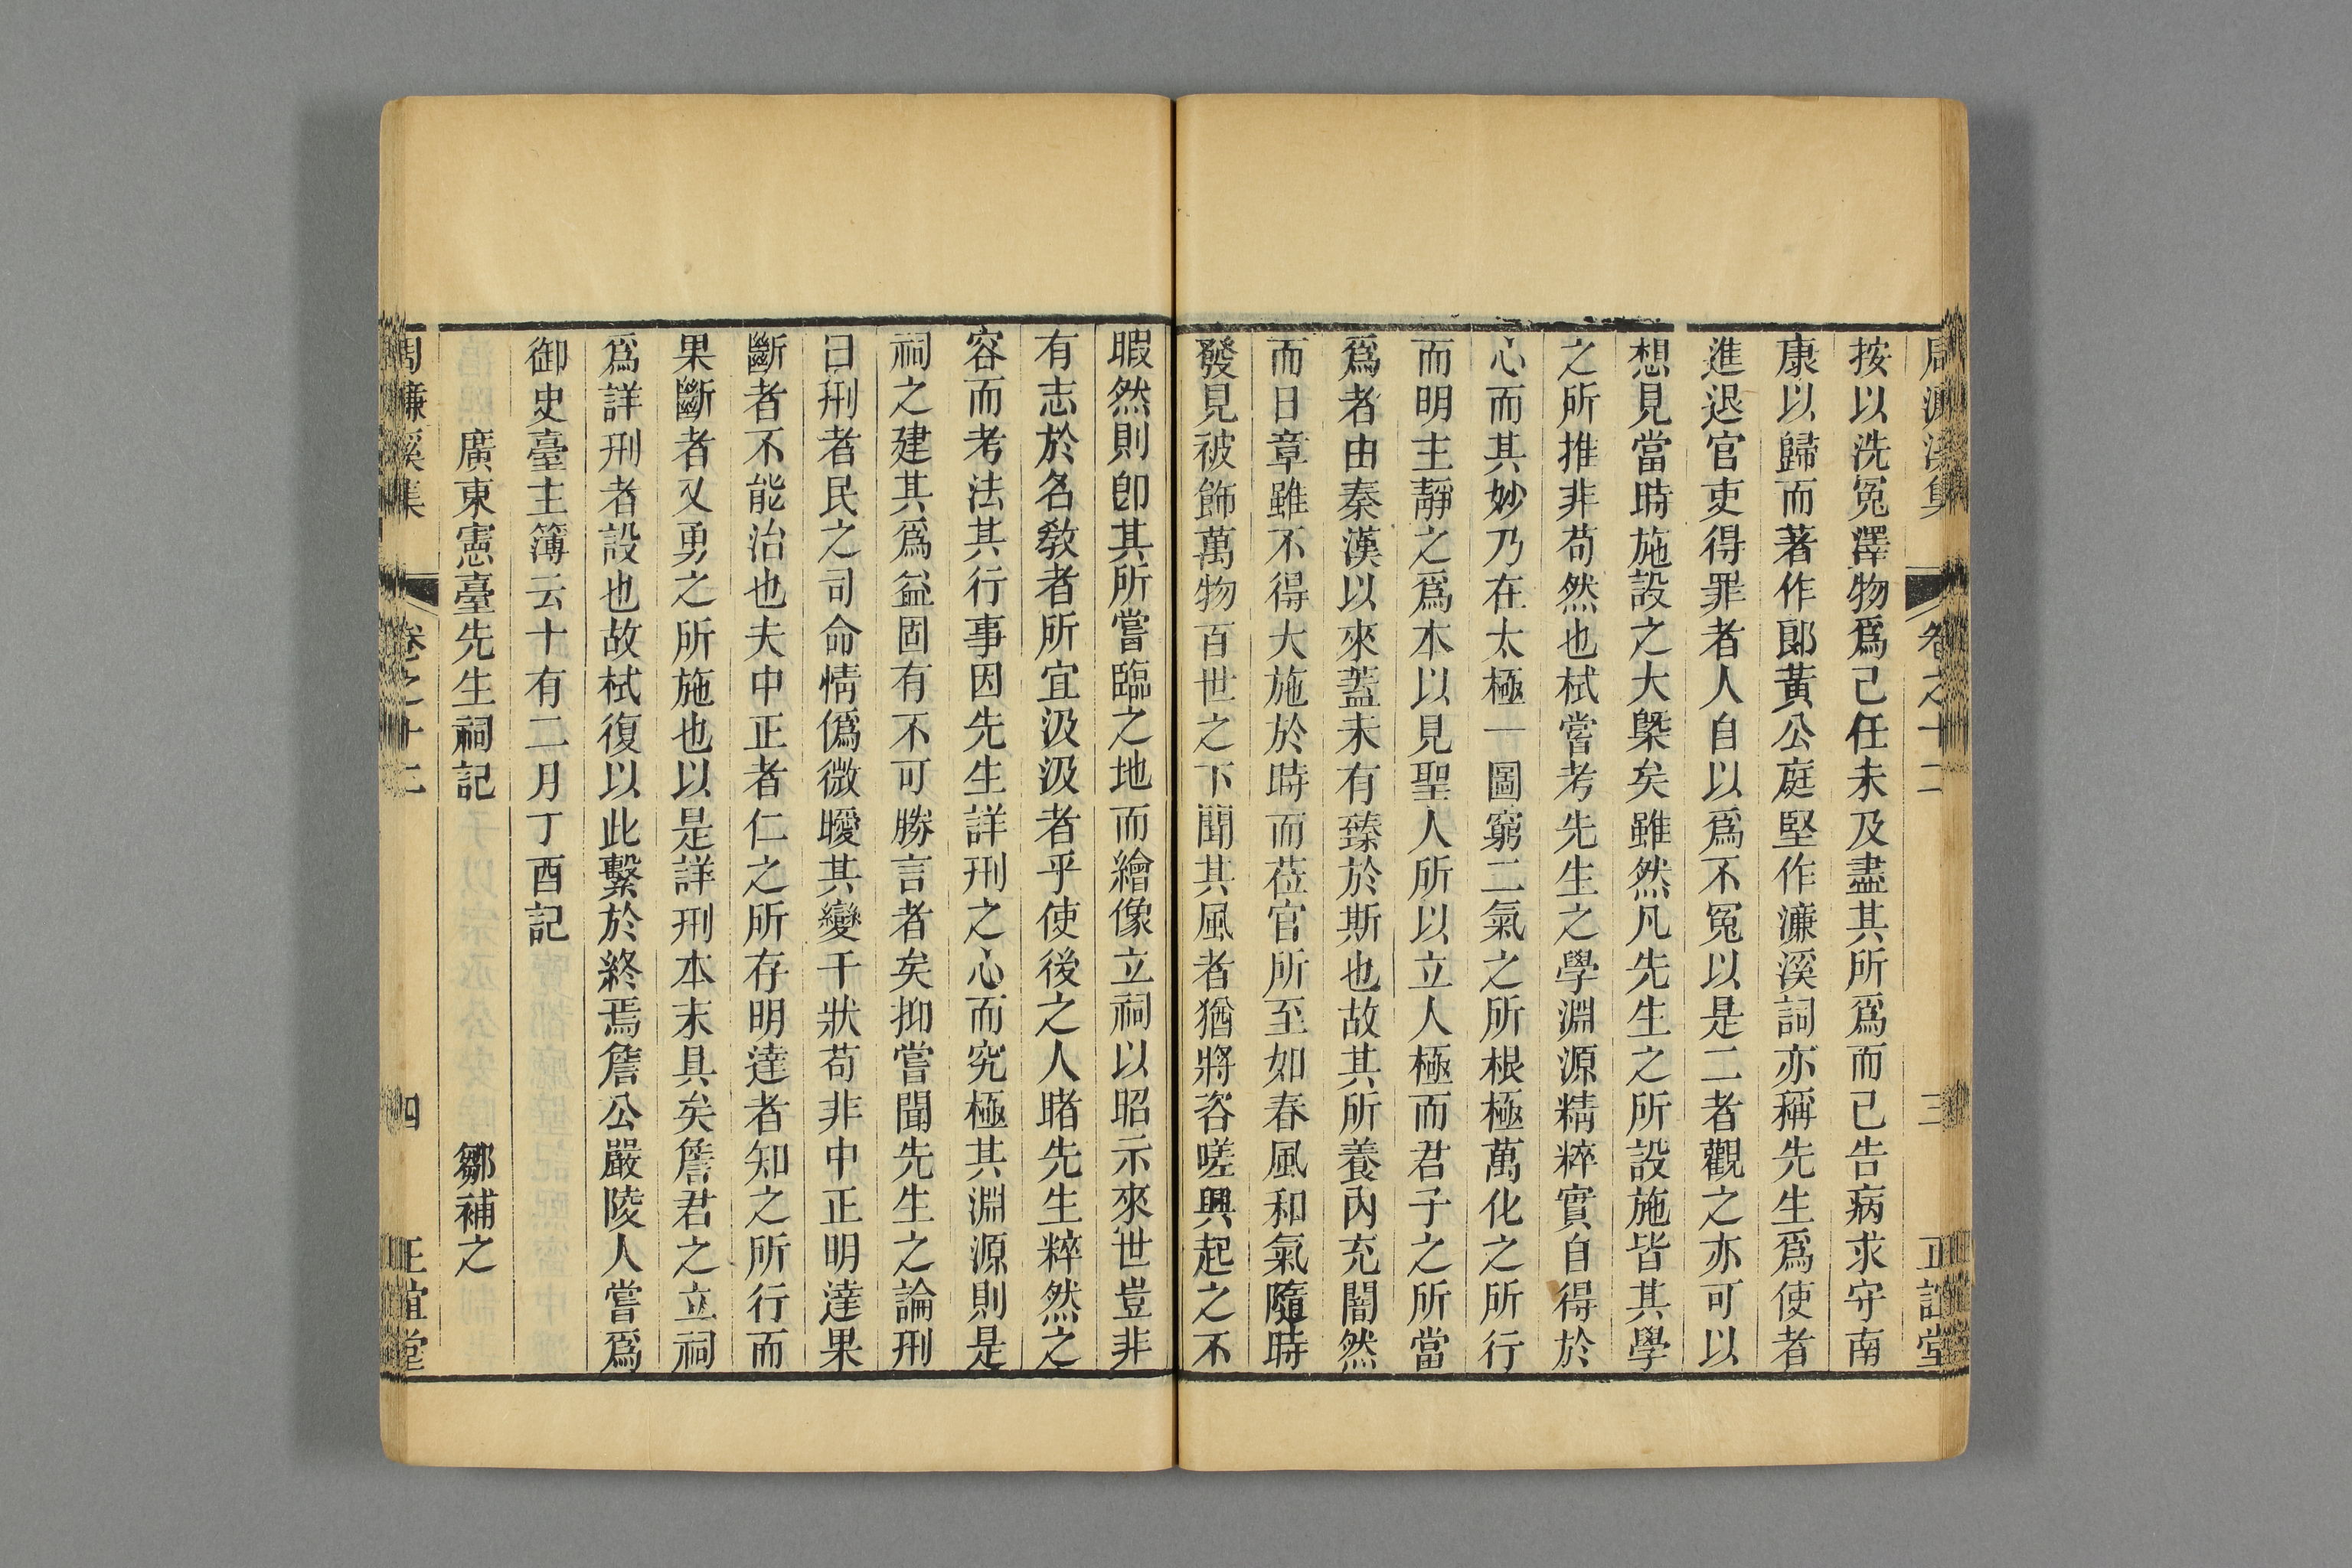 周濂溪集 卷之十二 三 正誼堂
按以洗冤澤物爲己任未及盡其所爲而已告病求守南
康以歸而著作郎黃公庭堅作濂溪詞亦稱先生爲使者
進退官吏得罪者人自以爲不冤以是二者觀之亦可以
想見當時施設之大槩矣雖然凡先生之所設施皆其學
之所推非苟然也栻嘗考先生之學淵源精粹實自得於
心而其妙乃在太極一圖窮二氣之所根極萬化之所行
而明主靜之爲本以見聖人所以立人極而君子之所當
爲者由秦漢以來蓋未有臻於斯也故其所養內充闇然
而日章雖不得大施於時而莅官所至如春風和氣隨時
發見被飾萬物百世之下聞其風者猶將咨嗟興起之不
暇然則卽其所嘗臨之地而繪像立祠以昭示來世豈非
有志於名敎者所宜汲汲者乎使後之人睹先生粹然之
容而考法其行事因先生詳刑之心而究極其淵源則是
祠之建其爲益固有不可勝言者矣抑嘗聞先生之論刑
曰刑者民之司命情僞微曖其變千狀苟非中正明達果
斷者不能治也夫中正者仁之所存明達者知之所行而
果斷者又勇之所施也以是詳刑本末具矣詹君之立祠
爲詳刑者設也故栻復以此繫於終焉詹公嚴陵人嘗爲
御史臺主簿云十有二月丁酉記
廣東憲臺先生祠記 鄒補之
周濂溪集 卷之十二 四 正誼堂